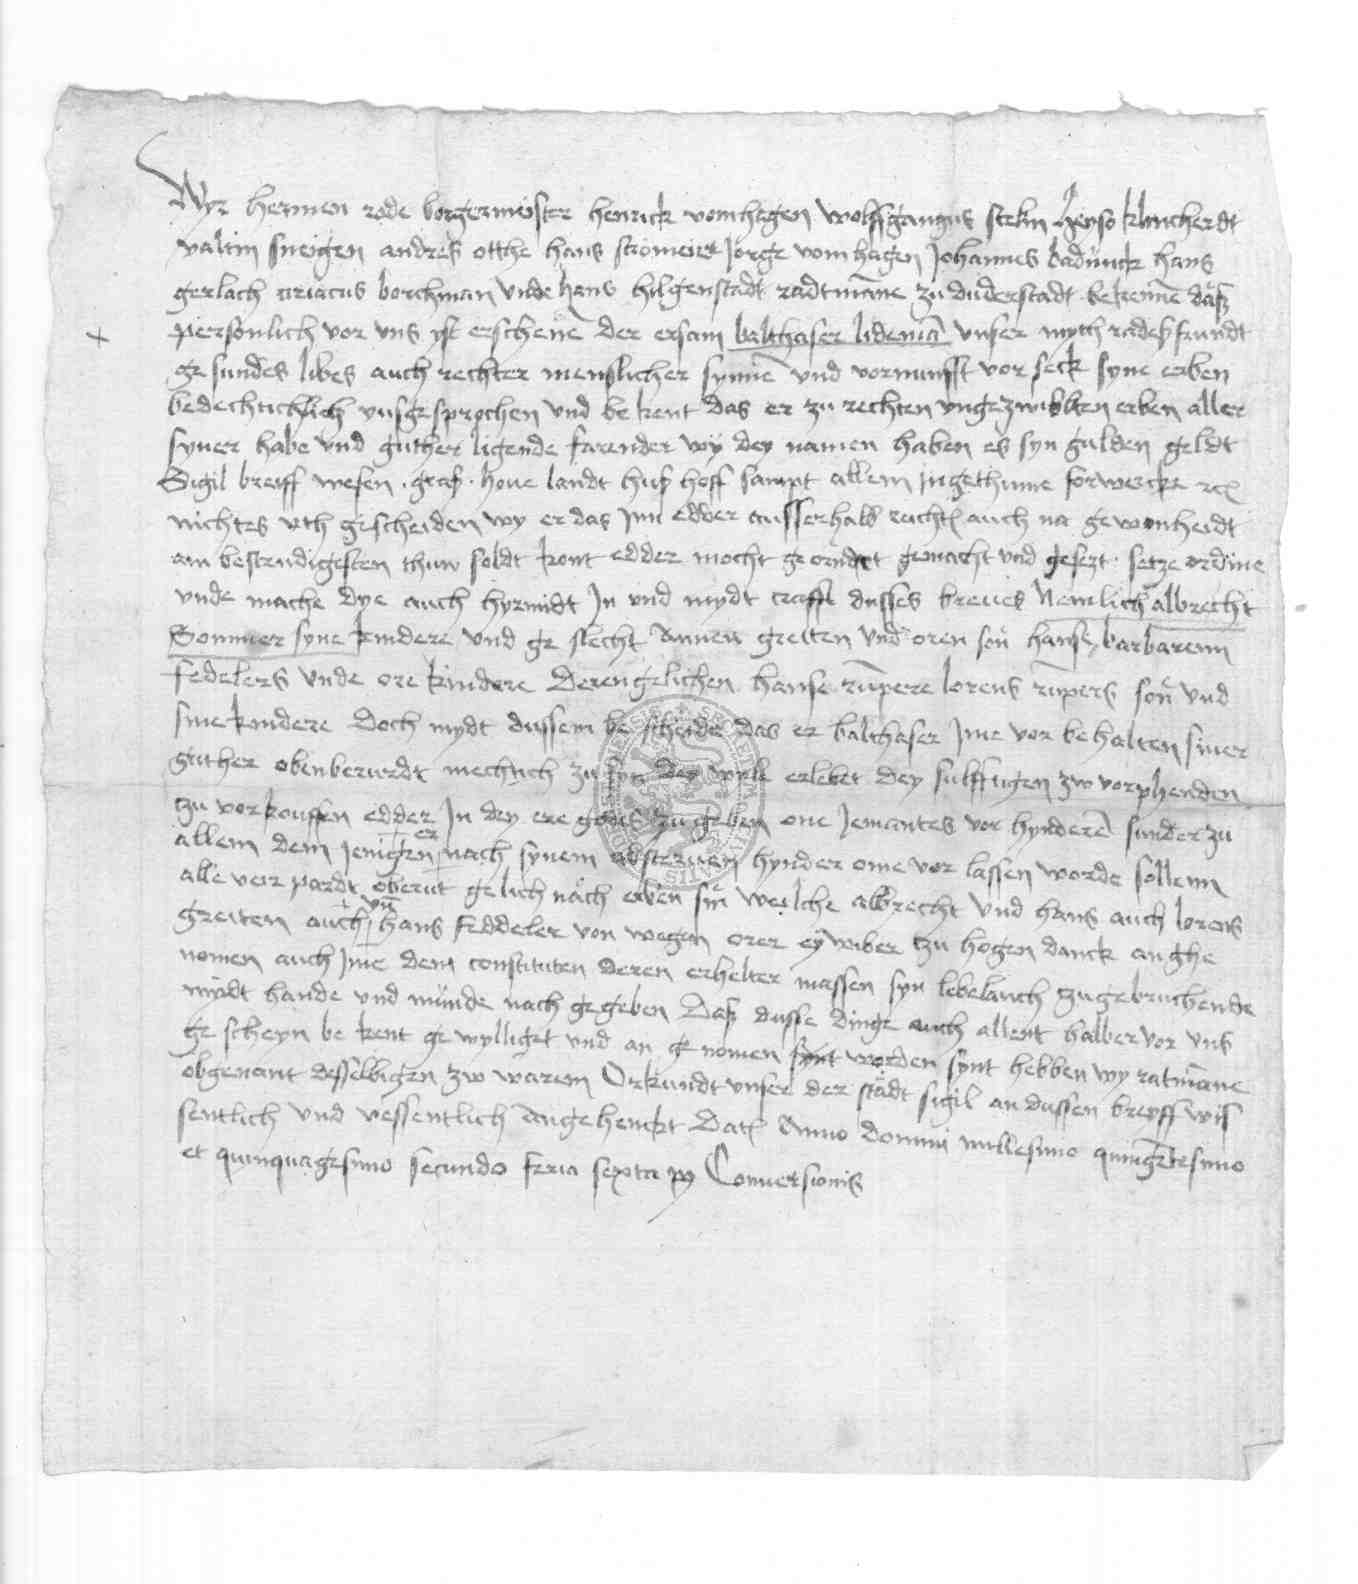 Wyr hermen rode borgermeister henrick vom hagen wolffgangus stekn heyso klincherdt
valtin sneigen andres otthe hans stromeier Jorge vom hagen Johannes badunck hans
gerlach ciriacus borchman vnde hans hilgenstadt radtmāne zu duderstadt bekennē daß
personlich vor vns yst erschenē der ersam balthaser lidemā vnser myth radeßfrundt
gesundes libes auch rechter menslicher synnē vnd vornunfft vor seck syne erben
bedechtichlich vusgesprochen vnd bekent das er zu rechten vngezwibelten erben aller
syner habe vnd guther ligende farender wy dey namen haben es syn gulden geldt
Sigil breiff wesen graß houe landt huß hoff sampt allem ingethume forwercke
nichtes vth gescheiden wy er das inn edder ausserhalb auch na gewonheidt
am bestendigesten thun soldt kont edder mocht georndet gemacht vnd gesezt setze ordine
vnde mache dye auch hyrmidt In vnd mydt crafft dusses breues Nemlich albrecht
Sommer syne kindere vnd geslecht Annen greiten vnd oren son hanse barbarenn
fedelers vnde ore kindere derengelichen hanse rumpere lorens rumpers son vnd
sine kindere doch mydt dussem bescheide das er balthaser Ime vorbehalten siner
guther obenberurdt mechtich zu syn dey wyle erlebet dey sulffigen zw vorphenden
zu vorkouffen edder In dey ere godes zu geben one Jemantes vorhynderē sunder zu
allem dem Jenigen er nach synem absterven hynder ome vorlassen worde sollenn
alle veir pardt oberut gelich nach erben sin welche albrecht vnd hans auch lorens
greiten auch vn hans feddeler von wegen orer eywiber tzu hogen danck anghe
nomen auch Ime dem constituten deren erhelter massen syn lebelanch zugebruchende
mydt hande vnd munde nach gegeben Daß dusse dinge auch allent halber vor vns
gescheyn bekent gewylliget vnd an genomen synt worden synt hebben wy ratmāne
obgenant desselbigen zw warem Orkundt vnser der stadt sigil an dussen breyff wis
sentlich vnd vessentlich angehenckt Dat Anno domini millesimo quingētesimo
et quinquagesimo secundo feria sexta Conuersionis